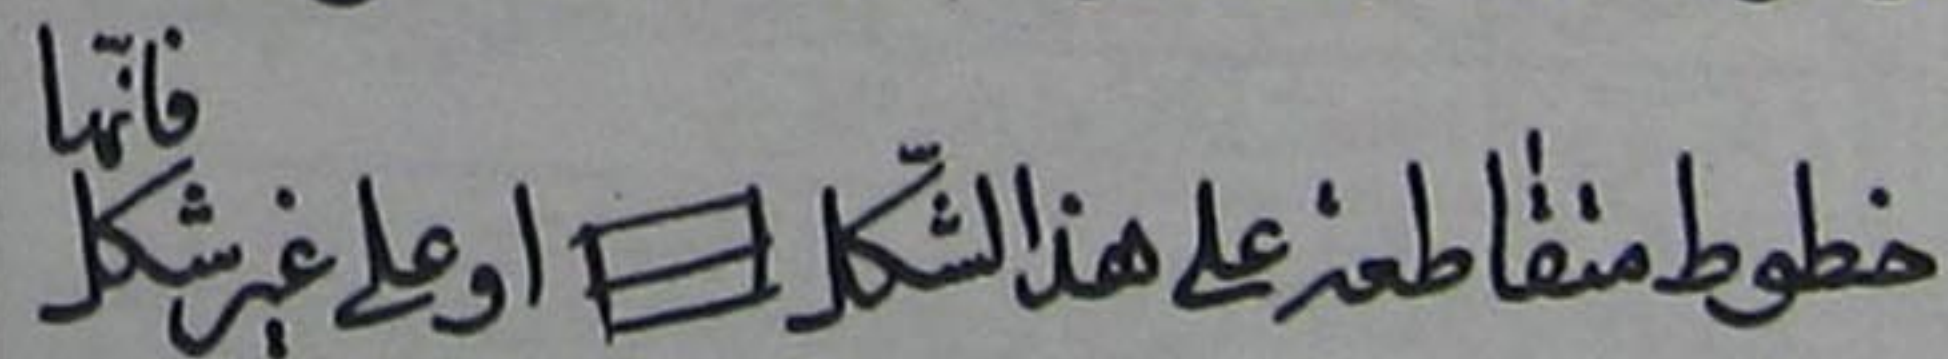 خطوط متقاطعة على هذا الشّكل او على غير شكل
فانّها